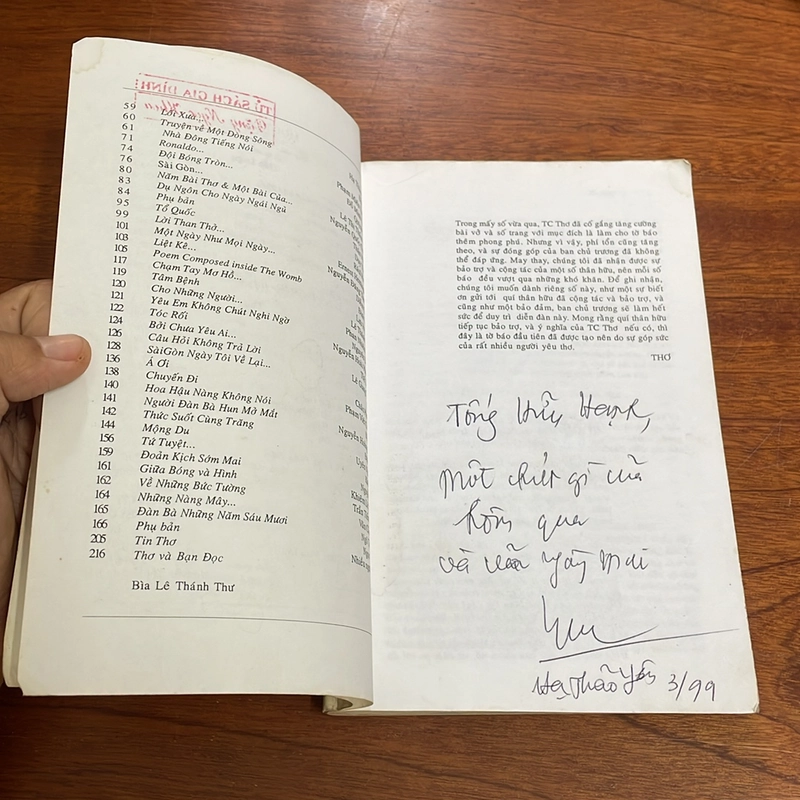 TỦ SÁCH GIA ĐÌNH
59 Lối Xưa...
60 Truyện về Một Dòng Sông
61 Nhà Đông Tiếng Nói
71 Ronaldo...
74 Đội Bóng Tròn...
76 Sài Gòn...
80 Năm Bài Thơ & Một Bài Của...
83 Dụ Ngôn Cho Ngày Ngái Ngủ
84 Phụ bản
95 Tổ Quốc
99 Lời Than Thở...
101 Một Ngày Như Mọi Ngày...
103 Liệt Kê...
105 Poem Composed inside The Womb
117 Chạm Tay Mơ Hồ...
119 Tâm Bệnh
120 Cho Những Người...
121 Yêu Em Không Chút Nghi Ngờ
122 Tóc Rối
124 Bởi Chưa Yêu Ai...
126 Câu Hỏi Không Trả Lời
128 SàiGòn Ngày Tôi Về Lại...
136 Á Ơi
138 Chuyến Đi
140 Hoa Hậu Nàng Không Nói
141 Người Đàn Bà Hun Mở Mắt
142 Thức Suốt Cùng Trăng
144 Mộng Du
156 Tứ Tuyệt...
159 Đoản Kịch Sớm Mai
161 Giữa Bóng và Hình
162 Về Những Bức Tường
164 Những Nàng Mây...
165 Đàn Bà Những Năm Sáu Mươi
166 Phụ bản
205 Tin Thơ
216 Thơ và Bạn Đọc
Bìa Lê Thánh Thư
Trong mấy số vừa qua, TC Thơ đã cố gắng tăng cường
bài vở và số trang với mục đích là làm cho tờ báo
thêm phong phú. Nhưng vì vậy, phí tổn cũng tăng
theo, và sự đóng góp của ban chủ trương đã không
thể đáp ứng. May thay, chúng tôi đã nhận được sự
bảo trợ và cộng tác của một số thân hữu, nên mỗi số
báo đều vượt qua những khó khăn. Để ghi nhận,
chúng tôi muốn dành riêng số này, như một sự biết
ơn gửi tới quí thân hữu đã cộng tác và bảo trợ, và
cũng như một bảo đảm, ban chủ trương sẽ làm hết
sức để duy trì diễn đàn này. Mong rằng quí thân hữu
tiếp tục bảo trợ, và ý nghĩa của TC Thơ nếu có, thì
đây là tờ báo đầu tiên đã được tạo nên do sự góp sức
của rất nhiều người yêu thơ.
THƠ
Tống Hữu Hạnh,
một chút gì của
hôm qua
và vẫn ngày mai
Hạ Thảo Yên 3/99